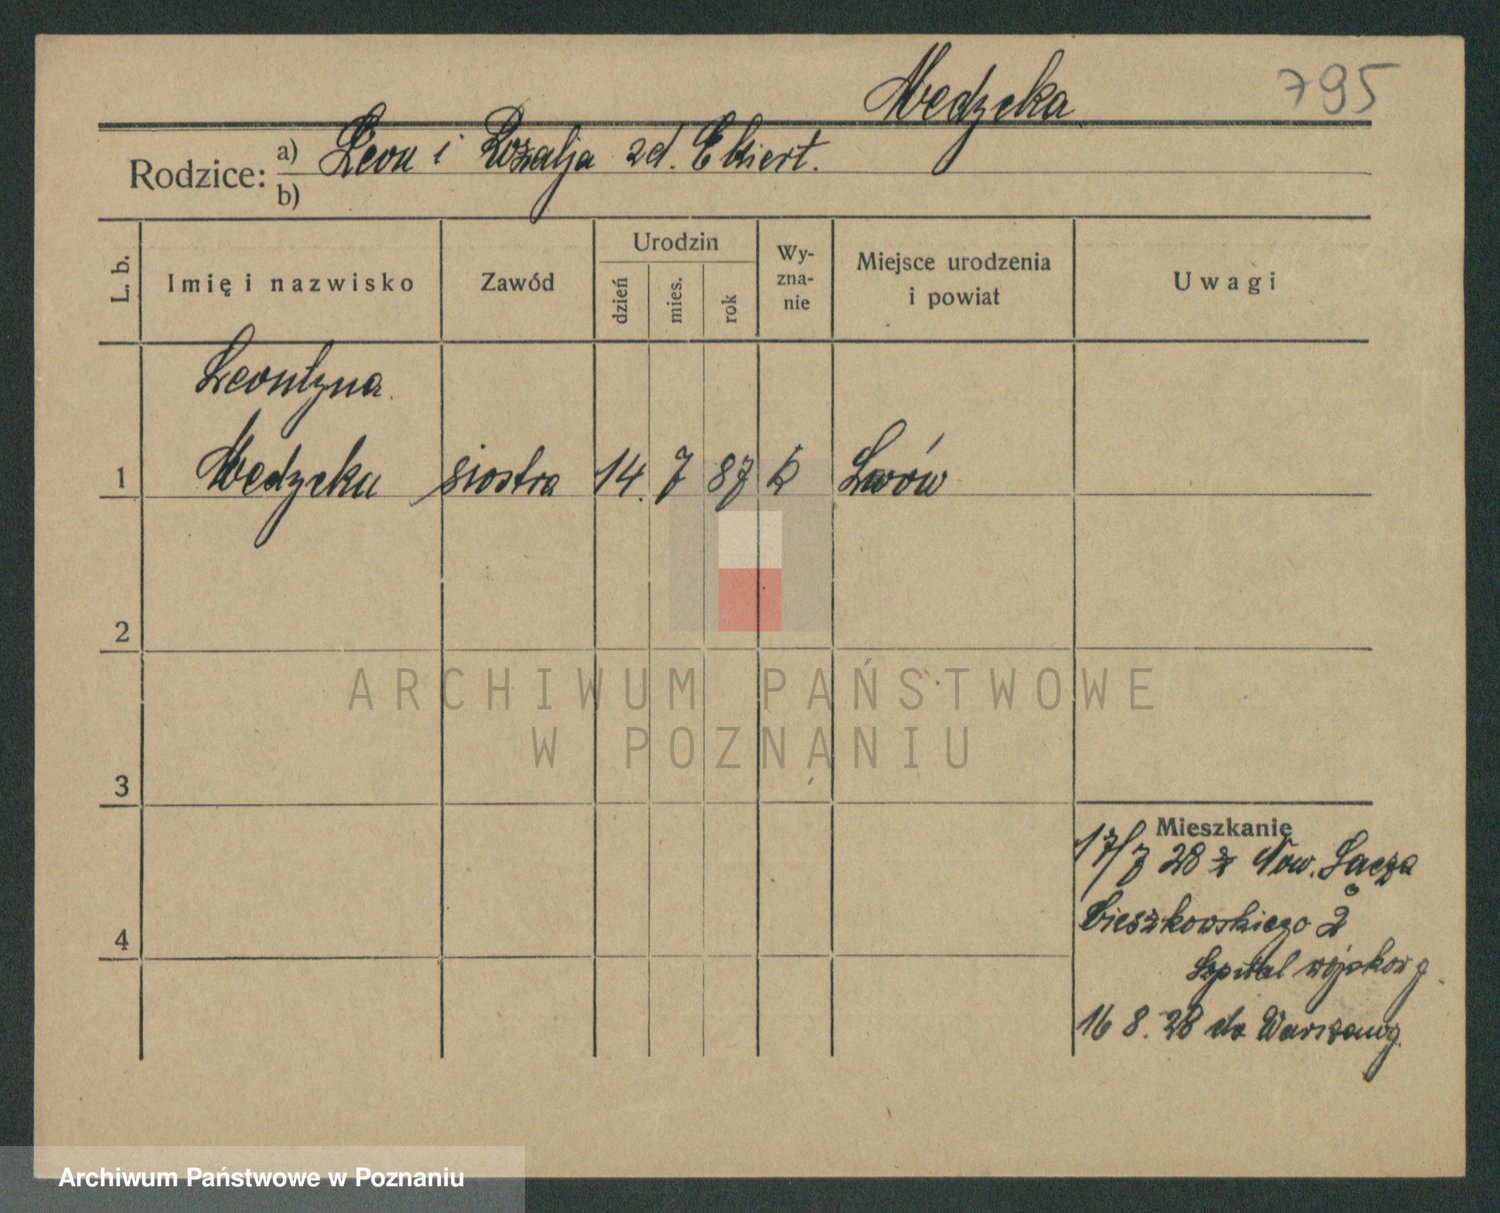 Medzcka
795
Rodzice: a) Leon i Rozalja zd. Ekiert.
b)
L. b.
Imię i nazwisko
Zawód
Urodzin
dzień
mies.
rok
Wy-
zna-
nie
Miejsce urodzenia
i powiat
Uwagi
Leontyna
1 siostra 14. 7 87 k Lwów
2
3
Mieszkanie
17/7 28 z Now. Sącza
Cieszkowskiego 2
4
Szpital wojskowy
16 8. 28 do Warszawy
ARCHIWUM PAŃSTWOWE
W POZNANIU
Archiwum Państwowe w Poznaniu